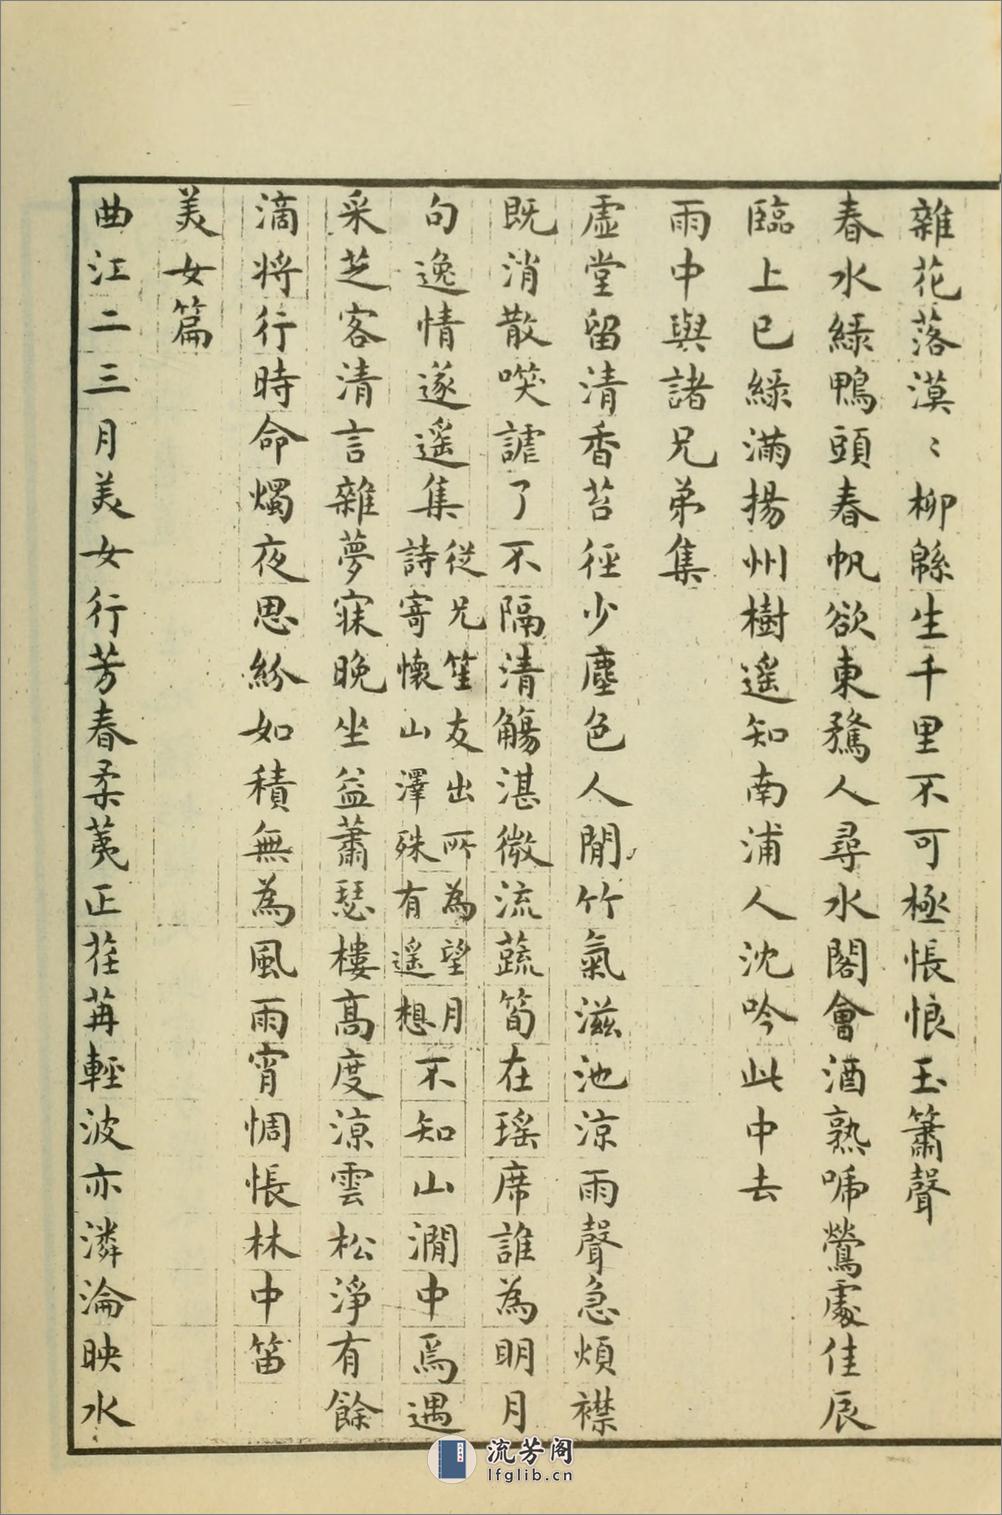 雜花落漠〻柳緜生千里不可極悵悢玉簫聲
春水綠鴨頭春帆欲東騖人尋水閣會酒熟啼鶯處佳辰
臨上巳綠滿揚州樹遥知南浦人沈吟此中去
雨中與諸兄弟集
虛堂留清香苔徑少塵色人閒竹氣滋池涼雨聲急煩襟
既消散咲謔了不隔清觴湛微流蔬筍在瑤席誰為明月
句逸情遂遥集從兄笙友出所為望月詩寄懷山澤殊有遥想不知山澗中焉遇
采芝客清言雜夢寐晚坐益蕭瑟樓高度涼雲松淨有餘
滴將行時命燭夜思紛如積無為風雨宵惆悵林中笛
美女篇
曲江二三月美女行芳春柔荑正荏苒輕波亦潾淪映水
流芳阁
lfglib.cn